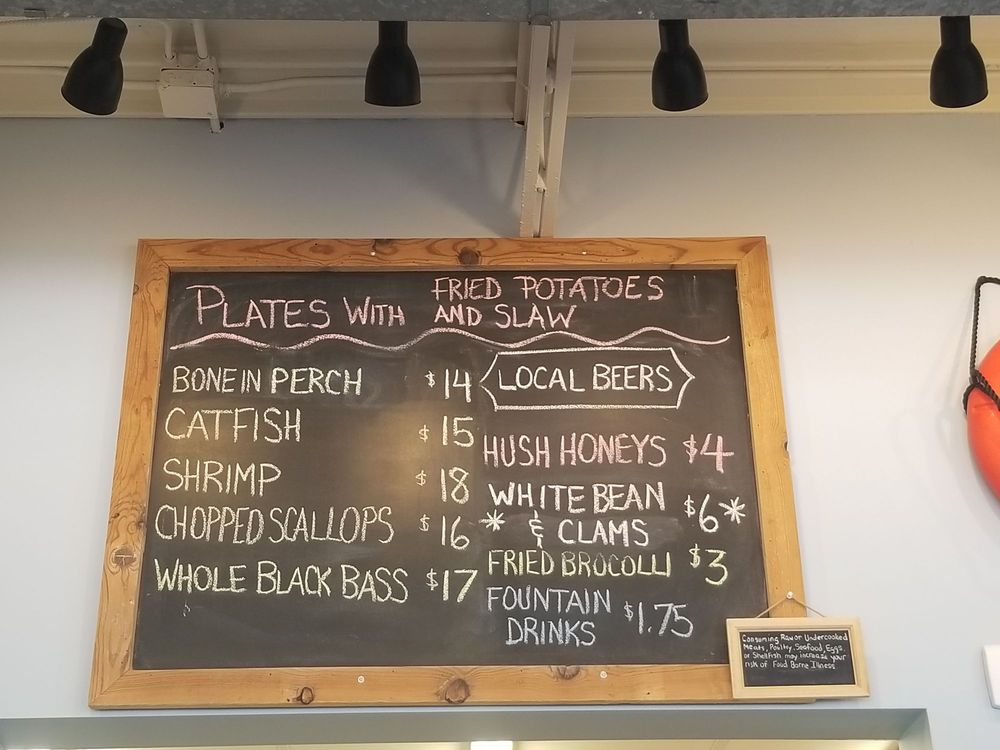 PLATES WITH FRIED POTATOES
AND SLAW
BONE IN PERCH $14
CATFISH $15
SHRIMP $18
CHOPPED SCALLOPS $16
WHOLE BLACK BASS $17
LOCAL BEERS
HUSH HONEYS $4
WHITE BEAN
* & CLAMS $6*
FRIED BROCOLLI $3
FOUNTAIN
DRINKS $1.75
Consuming Raw or Undercooked
Meats, Poultry, Seafood, Eggs,
or Shellfish may increase your
risk of Food Borne Illness